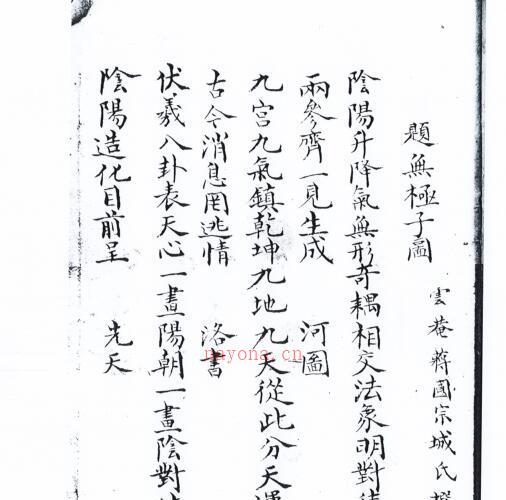 題無極子圖 雲菴蔣國宗城氏
陰陽升降氣無形奇耦相交法象明對
兩參齊一見生成 河圖
九宮九氣鎮乾坤九地九天從此分天
古今消息罔逃情 洛書
伏羲八卦表天心一畫陽朝一畫陰對
陰陽造化目前呈 先天
nayona.cn